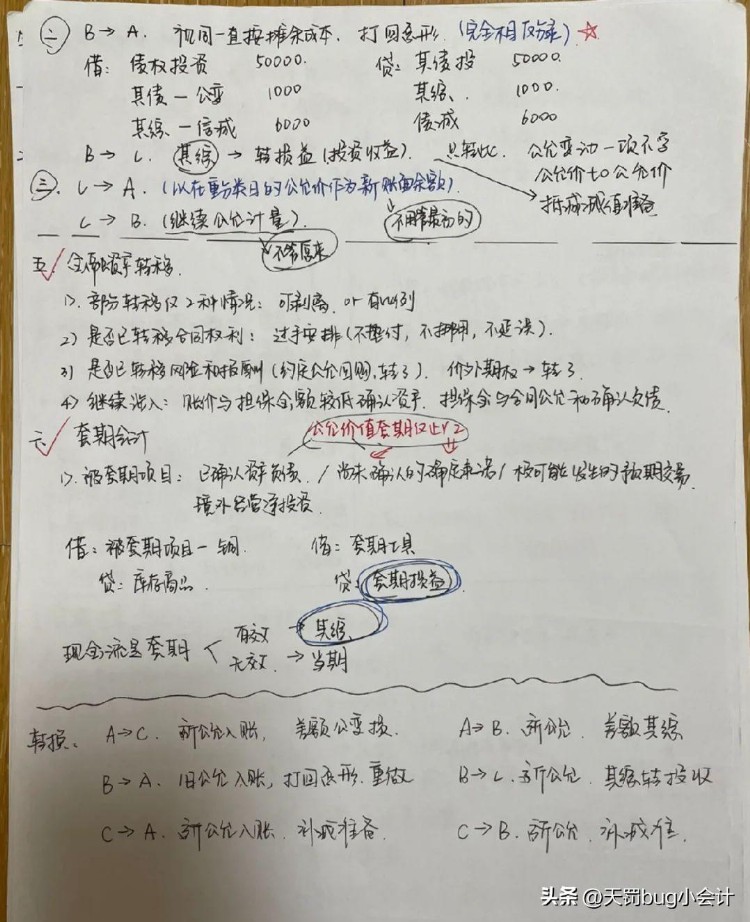 二 B→A. 视同一直按摊余成本, 打回原形.(完全相反分录)☆
借: 债权投资 50000. 贷: 其债投 50000.
其债－公变 1000 其综. 1000.
其综－信减 6000 债减 6000
B→C. 其综→转损益(投资收益). 只转此. 公允变动一项不写
公允价to公允价
三. C→A.(以在重分类日的公允价作为新账面余额).
抵减减值准备
C→B.(继续公允计量).
不用管最初的
不管原来
五. 金融资产转移.
1). 部分转移仅2种情况: 可剥离, or 有比例
2) 是否已转移合同权利: 过手安排(不垫付, 不挪用, 不延误).
3) 是否已转移风险和报酬(约定公允回购,转了). 价外期权→转了
4) 继续涉入: 账价与担保金额较低确认资产. 担保金与合同公允和确认负债.
六 套期会计
公允价值套期仅止步2
1). 被套期项目: 已确认资产负债. / 尚未确认的确定承诺 / 极可能发生的预期交易.
境外经营净投资.
借: 被套期项目－铜 借: 套期工具
贷: 库存商品. 贷: 套期损益
现金流量套期 < 有效→其综.
无效.→当期
转换: A→C. 新公允入账, 差额公变损. A→B. 新公允. 差额其综
B→A. 旧公允入账, 打回原形.重做 B→C.新公允. 其综转投收
C→A. 新公允入账. 补减准备. C→B. 新公允. 补减准.
头条 @天罚bug小会计